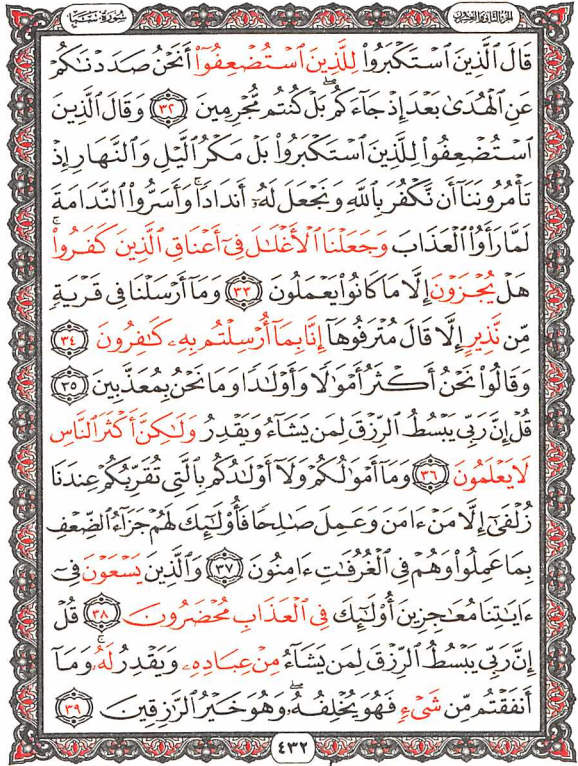 الجزء الثاني والعشرون
سُورَةُ سَبَإٍ
قَالَ ٱلَّذِينَ ٱسۡتَكۡبَرُواْ لِلَّذِينَ ٱسۡتُضۡعِفُوٓاْ أَنَحۡنُ صَدَدۡنَٰكُمۡ
عَنِ ٱلۡهُدَىٰ بَعۡدَ إِذۡ جَآءَكُمۖ بَلۡ كُنتُم مُّجۡرِمِينَ ٣٢ وَقَالَ ٱلَّذِينَ
ٱسۡتُضۡعِفُواْ لِلَّذِينَ ٱسۡتَكۡبَرُواْ بَلۡ مَكۡرُ ٱلَّيۡلِ وَٱلنَّهَارِ إِذۡ
تَأۡمُرُونَنَآ أَن نَّكۡفُرَ بِٱللَّهِ وَنَجۡعَلَ لَهُۥٓ أَندَادٗاۚ وَأَسَرُّواْ ٱلنَّدَامَةَ
لَمَّا رَأَوُاْ ٱلۡعَذَابَ وَجَعَلۡنَا ٱلۡأَغۡلَٰلَ فِيٓ أَعۡنَاقِ ٱلَّذِينَ كَفَرُواْۚ
هَلۡ يُجۡزَوۡنَ إِلَّا مَا كَانُواْ يَعۡمَلُونَ ٣٣ وَمَآ أَرۡسَلۡنَا فِي قَرۡيَةٖ
مِّن نَّذِيرٍ إِلَّا قَالَ مُتۡرَفُوهَآ إِنَّا بِمَآ أُرۡسِلۡتُم بِهِۦ كَٰفِرُونَ ٣٤
وَقَالُواْ نَحۡنُ أَكۡثَرُ أَمۡوَٰلٗا وَأَوۡلَٰدٗا وَمَا نَحۡنُ بِمُعَذَّبِينَ ٣٥
قُلۡ إِنَّ رَبِّي يَبۡسُطُ ٱلرِّزۡقَ لِمَن يَشَآءُ وَيَقۡدِرُ وَلَٰكِنَّ أَكۡثَرَ ٱلنَّاسِ
لَا يَعۡلَمُونَ ٣٦ وَمَآ أَمۡوَٰلُكُمۡ وَلَآ أَوۡلَٰدُكُم بِٱلَّتِي تُقَرِّبُكُمۡ عِندَنَا
زُلۡفَىٰٓ إِلَّا مَنۡ ءَامَنَ وَعَمِلَ صَٰلِحٗا فَأُوْلَٰٓئِكَ لَهُمۡ جَزَآءُ ٱلضِّعۡفِ
بِمَا عَمِلُواْ وَهُمۡ فِي ٱلۡغُرُفَٰتِ ءَامِنُونَ ٣٧ وَٱلَّذِينَ يَسۡعَوۡنَ فِيٓ
ءَايَٰتِنَا مُعَٰجِزِينَ أُوْلَٰٓئِكَ فِي ٱلۡعَذَابِ مُحۡضَرُونَ ٣٨ قُلۡ
إِنَّ رَبِّي يَبۡسُطُ ٱلرِّزۡقَ لِمَن يَشَآءُ مِنۡ عِبَادِهِۦ وَيَقۡدِرُ لَهُۥۚ وَمَآ
أَنفَقۡتُم مِّن شَيۡءٖ فَهُوَ يُخۡلِفُهُۥۖ وَهُوَ خَيۡرُ ٱلرَّٰزِقِينَ ٣٩
٤٣٢